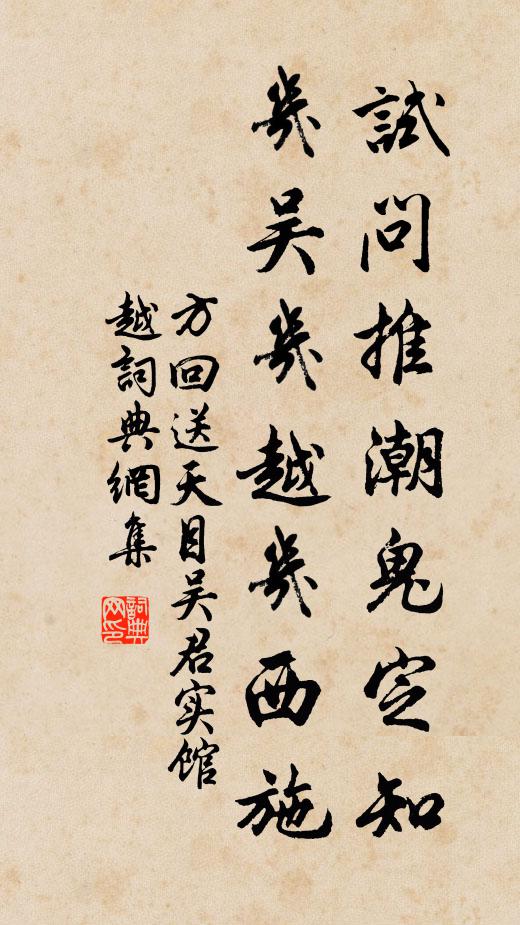 試問推潮鬼定知
幾吴幾越幾西施
方回送天目吴君实馆
越詞典網集
詞典网印